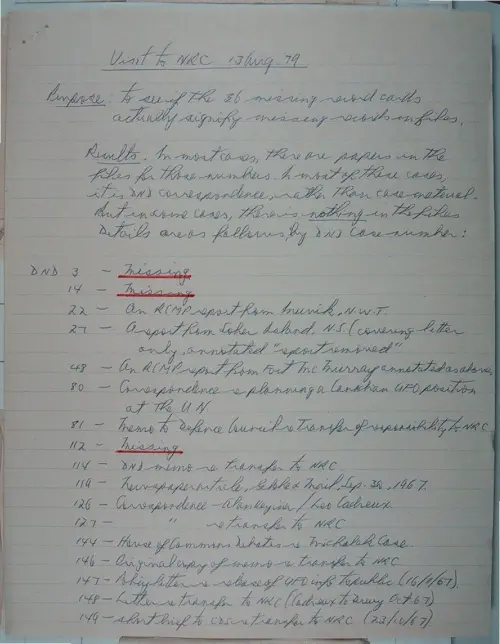 Visit to NRC 13 Aug. 79
Purpose: to see if the 36 missing record cards
actually signify missing records in files.
Results. In most cases, there are papers in the
files for those numbers. In most of these cases,
it is DND correspondence, rather than case material.
But in some cases, there is nothing in the files
Details are as follows, by DND case number:
DND 3 - Missing
14 - Missing
22 - An RCMP report from Inuvik, N.W.T.
27 - A report from Island, N.S. (covering letter
only, annotated "report removed"
48 - An RCMP report from Fort Mc Murray annotated as above
80 - Correspondence re planning a Canadian UFO position
at the U.N.
81 - Memo to Defence Council re transfer of responsibility to NRC
112 - Missing
114 - DND memo re transfer to NRC
119 - Newspaper article, Globe & Mail, Sep. 1967.
126 - Correspondence - / Leo Cadieux
127 - " re transfer to NRC
144 - House of Commons Debates re Michalak Case.
146 - Original copy of memo re transfer to NRC
147 - letter re release of UFO info to public (16/11/67)
148 - Letter re transfer to NRC (Cadieux to Drury Oct 67)
149 - short brief to CDS re transfer to NRC (67)